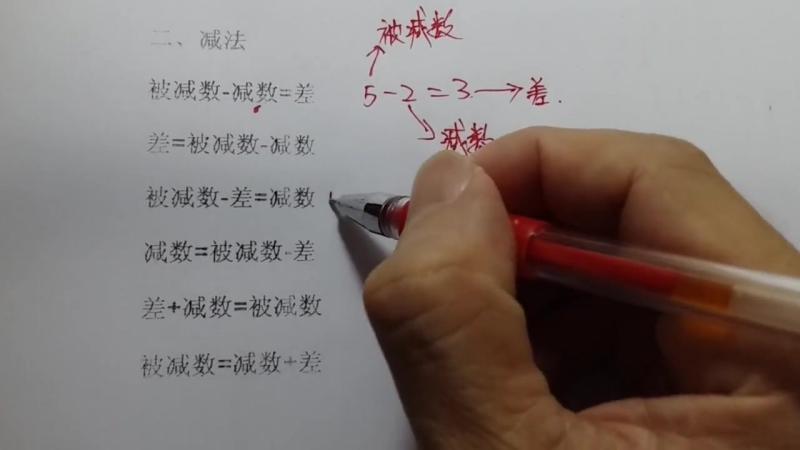 二、减法
被减数
被减数-减数=差
5-2=3→差.
减数
差=被减数-减数
被减数-差=减数
减数=被减数-差
差+减数=被减数
被减数=减数+差